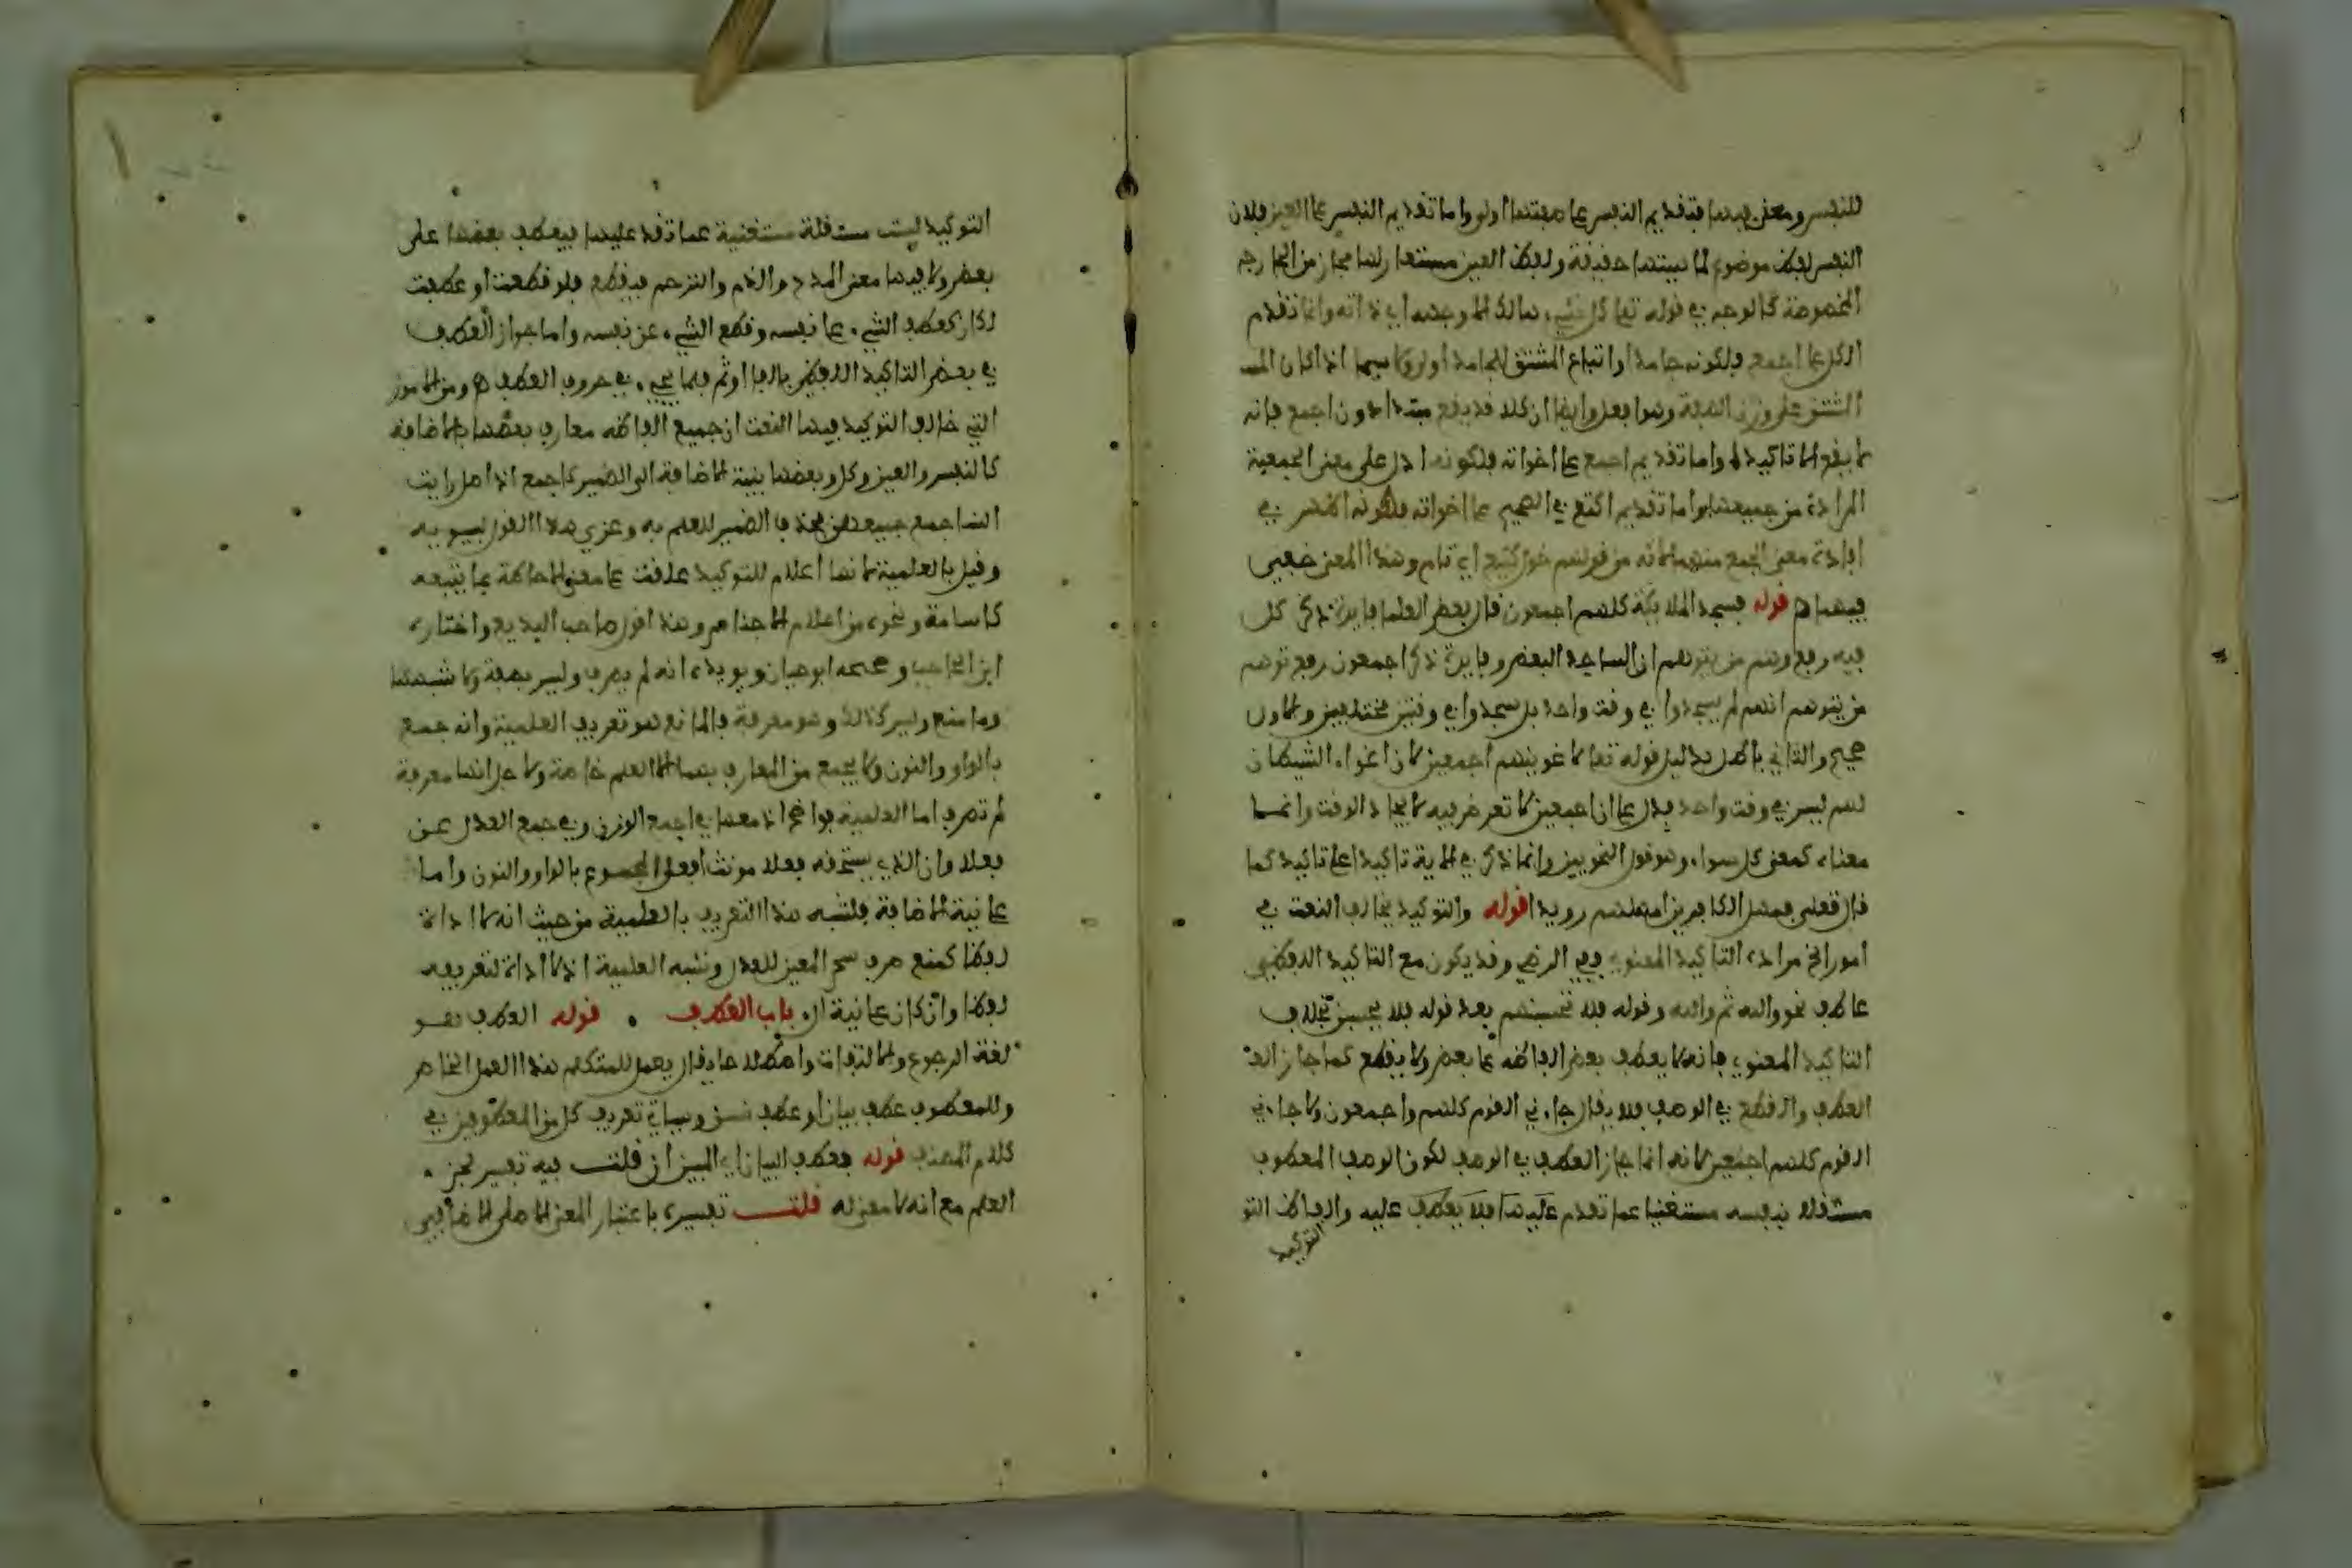 للنفس ومعنى فيها فتقديم النفس على صفتها اولى واما تقديم النفس على العين فلان
النفس لفظ موضوع لماهيتها حقيقة ولفظ العين مستعار لها مجاز من الجارحة
المخصوصة كالوجه في قوله تعالى كل شيء هالك الا وجهه اي ذاته واما تقدم
الكل على اجمع فلكونه جامدا واتباع المشتق للجامد اولى لا سيما اذا كان المشـ
المشتق على وزن الصفة وهو افعل وايضا ان كلا قد يقع مبتدا دون اجمع فانه
لا يقع الا تاكيدا واما تقديم اجمع على اخواته فلكونه ادل على معنى الجمعية
المرادة من جميعها واما تقديم اكتع في الصحيح على اخواته فلكونه اظهر في
افادة معنى الجمع منهما لانه من قولهم حول كتيع اي تام وهذا المعنى خفي
فيهما قوله فسجد الملائكة كلهم اجمعون قال بعض العلما فايدة ذكر كل
فيه رفع وهم من يتوهم ان الساجد البعض وفايدة ذكر اجمعون رفع توهم
من يتوهم انهم لم يسجدوا في وقت واحد بل سجدوا في وقتين مختلفين والاول
صحيح والثاني باطل بدليل قوله تعالى لاغوينهم اجمعين لان اغواء الشيطان
لهم ليس في وقت واحد فدل على ان اجمعين لا تعرض فيه لاتحاد الوقت وانما
معناه كمعنى كل سواء وهو قول النحويين وانما ذكر في الاية تاكيدا على تاكيد كما
قال تعلى فمهل الكافرين امهلهم رويدا قوله والتوكيد يخالف النعت في
امور الخ مراده التاكيد المعنوي ففي الرضي وقد يكون مع التاكيد اللفظي
عاطف نحو والله ثم والله وقوله فلا تحسبنهم بعد قوله فلا تحسبن بخلاف
التاكيد المعنوي فانه لا يعطف بعض الفاظه على بعض ولا يقطع كما جاز العـ
العطف والقطع في الوصف فلا يقال جاءني القوم كلهم واجمعون ولا جاءني
القوم كلهم اجمعين لانه انما جاز العطف في الوصف لكون الوصف المعطوف
مستقلا بنفسه مستغنيا عما تقدم عليها فلا يعطف عليه والفاظ التو
التوكيد
التوكيد ليست مستقلة مستغنية عما تقدم عليها فيعطف بعضها على
بعض ولا فيها معنى المدح والذم والترحم فيقطع فلو قطعت او عطفت
لكان كعطف الشيء على نفسه وقطع الشيء عن نفسه واما جواز العطف
في بعض التاكيد اللفظي بالفا او ثم فلما يجيء في حروف العطف ومن الامور
التي خالف التوكيد فيها النعت ان جميع الفاظه معارف بعضها بالاضافة
كالنفس والعين وكل وبعضها بنية الاضافة الى الضمير كاجمع اذ اصل رايت
النسا جمع جميعهن فحذف الضمير للعلم به وعزي هذا القول لسيبويه
وقيل بالعلمية لانها اعلام للتوكيد علقت على معنى الاحاطة بما يتبعه
كاسامة ونحوه من اعلام الاجناس وهذا قول صاحب البديع واختاره
ابن الحاجب وصححه ابو حيان ويويده انه لم يصرف وليس بصفة ولا شبهها
وما منع وليس كذلك وهو معرفة فالمانع هو تعريف العلمية وانه جمع
بالواو والنون ولا يجمع من المعارف بهما الا العلم خاصة ولاجل انها معرفة
لم تصرف اما العلمية فواضح اذ معها في اجمع الوزن وفي جمع العدل عن
فعلا وان الذي يستحقه فعلا مونث افعل المجموع بالواو والنون واما
على نية الاضافة فلشبه هذا التعريف بالعلمية من حيث انه لا اداة
لفظا كمنع صرف سحر المعين للعدل وشبه العلمية اذ لا اداة لتعريفه
لفظا وان كان على نية ال باب العطف . قوله العطف هو
لغة الرجوع والالتفات واصطلاحا يقال بفعل للمتكلم هذا العمل الخاص
وللمعطوف عطف بيان او عطف نسق وسياتي تعريف كل من المعطوفين في
كلام المصنف قوله فعطف البيان اي المبين ان قلت فيه تفسير لجزء
العلم مع انه لا معنى له قلت تفسيره باعتبار المعنى الاصلي الاضافي